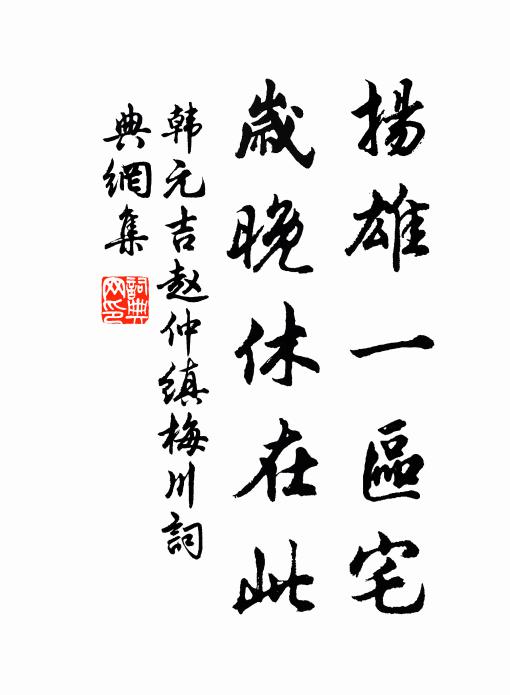 揚雄一區宅
歲晚休在此
韩元吉赵仲缜梅川詞
典網集
詞典网印